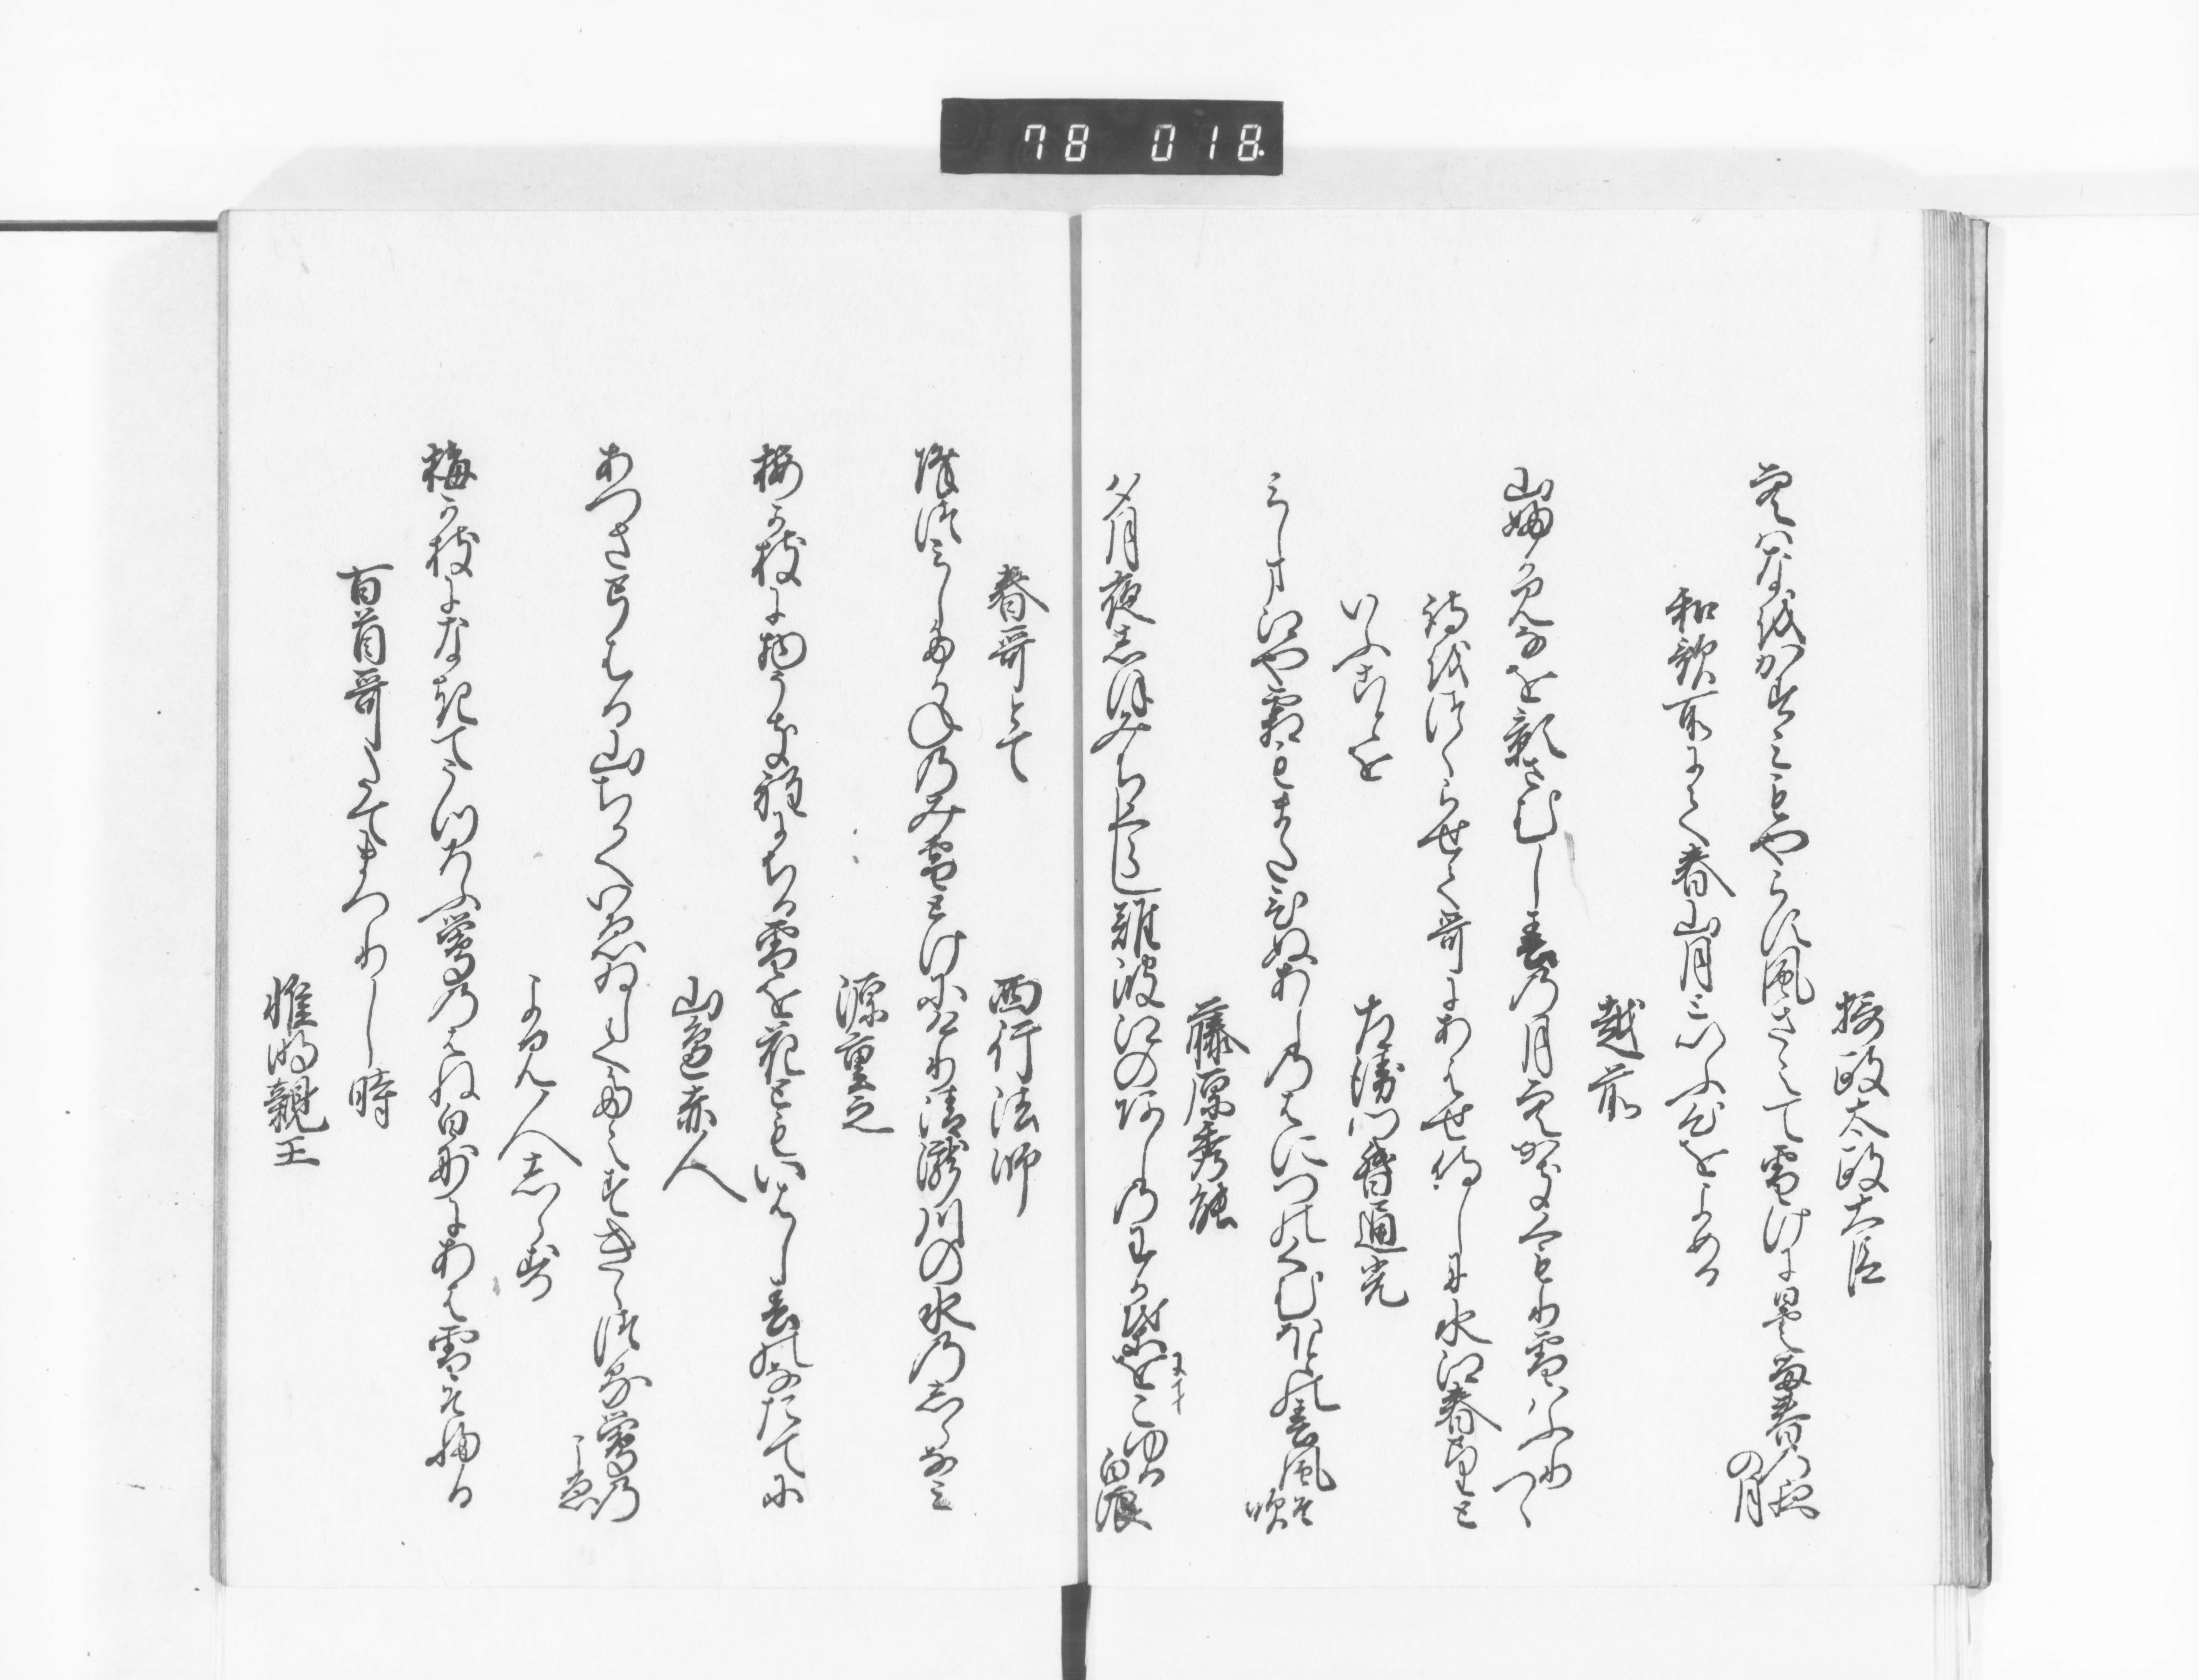 78 018
摂政太政大臣
空はなを
かすみもやらす風さえて雪けに曇る春の夜
の月
和歌所にて春山月といふ心をよめる
越前
山ふかみなを影さむし春の月空かきくもり雪はふり
つゝ
詩をつくらせて哥にあはせ侍しに水江春望と
いふことを
左衛門督通光
みしま江や霜もまたひぬあしのはにつのくむほとの春風そ
吹
藤原秀能
夕月夜しほみちくらし難波江のあしのわか葉をこゆる
白浪
春哥とて
西行法師
降つみしたかねのみ雪とけにけり清瀧川の水のしらなみ
源重之
梅か枝に物うきほとにちる雪を花ともいはし春の名たてに
山辺赤人
あつさ弓はる山ちかくいゑゐしてたえすきゝつる鶯の
こゑ
よみ人しらす
梅か枝になきてうつろふ鶯のはね白妙にあは雪そふる
百首哥たてまつりし時
惟明親王